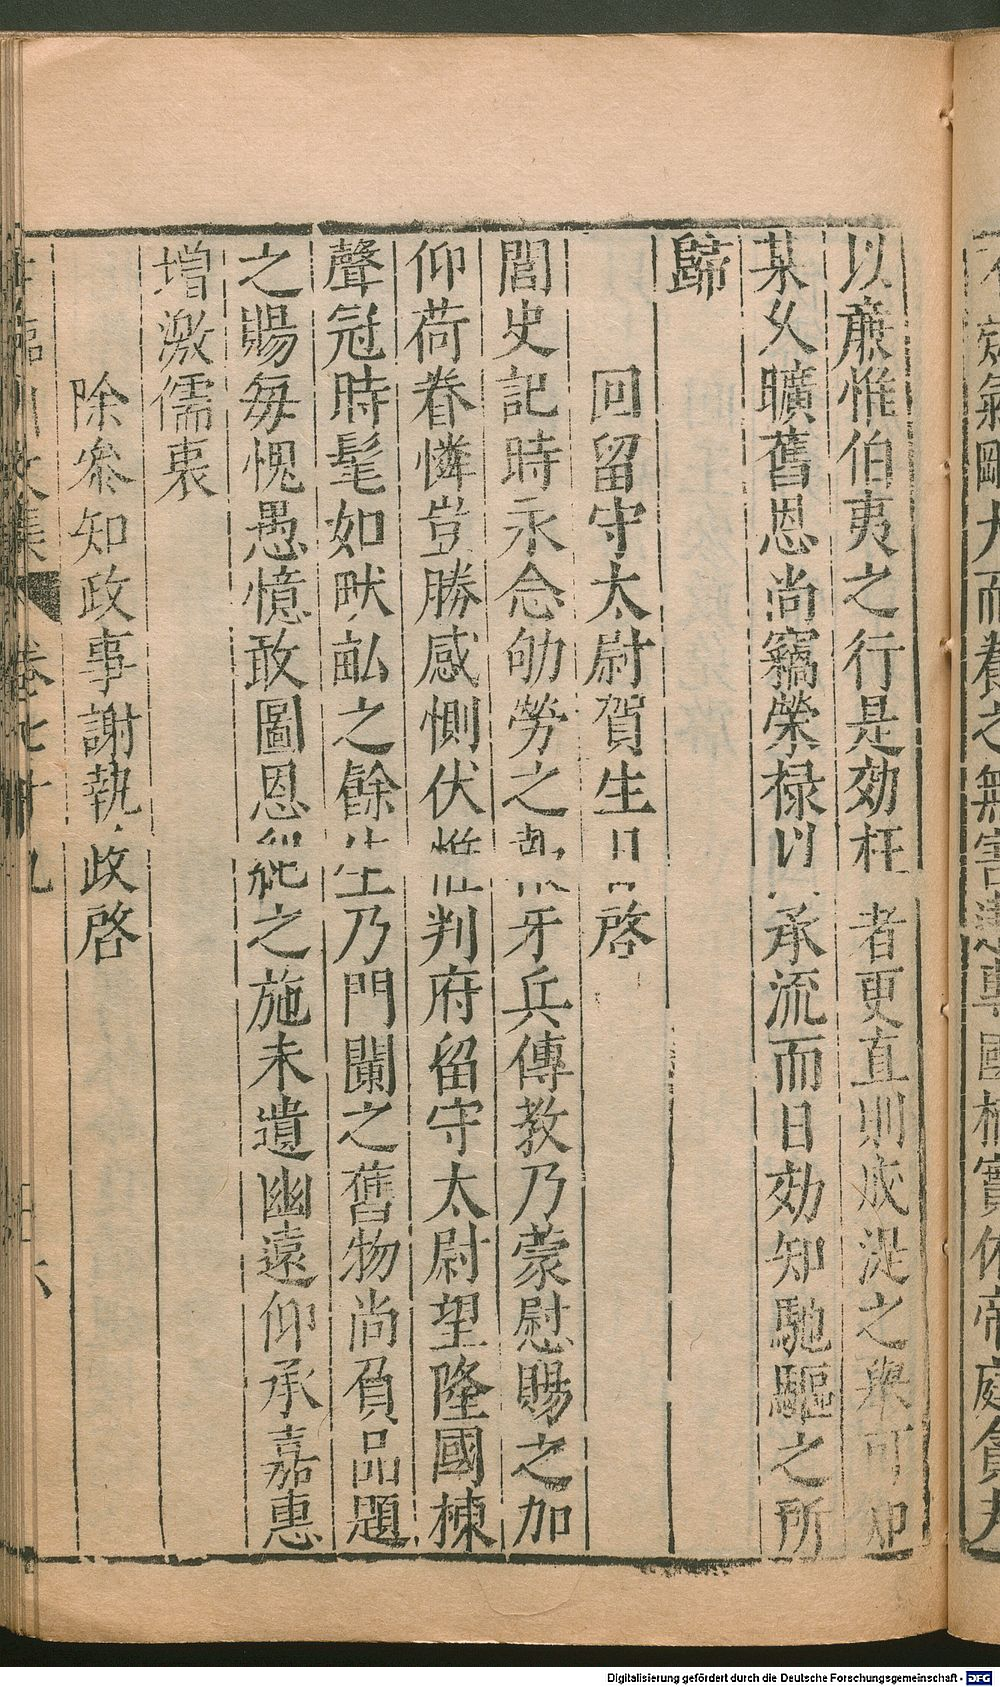 以廉惟伯夷之行是効枉者更直則成混之聚可卽
某久曠舊恩尚竊榮禄以承流而日効知馳驅之所
歸
回留守太尉賀生日啓
閭史記時永念劬勞之 牙兵傳教乃蒙慰賜之加
仰荷眷憐豈勝感惻伏惟判府留守太尉望隆國棟
聲冠時髦如畎畝之餘生乃門闌之舊物尚負品題
之賜每愧愚憶敢圖恩紀之施未遺幽遠仰承嘉惠
增激儒衷
除叅知政事謝執政啓
臨川文集 卷七十九
Digitalisierung gefördert durch die Deutsche Forschungsgemeinschaft - DFG